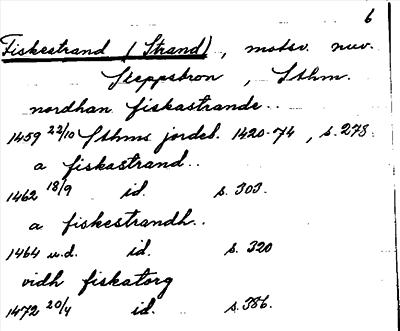 6
Fiskestrand (Strand), motsv. nuv.
Skeppsbron, Sthm.
nordhan fiskastrande..
1459 22/10 Sthms jordeb. 1420-74, s. 273.
a fiskastrand..
1462 18/9 id. s. 303.
a fiskestrandh..
1464 u.d. id. s. 320
vidh fiskatorg
1472 20/4 id. s. 386.